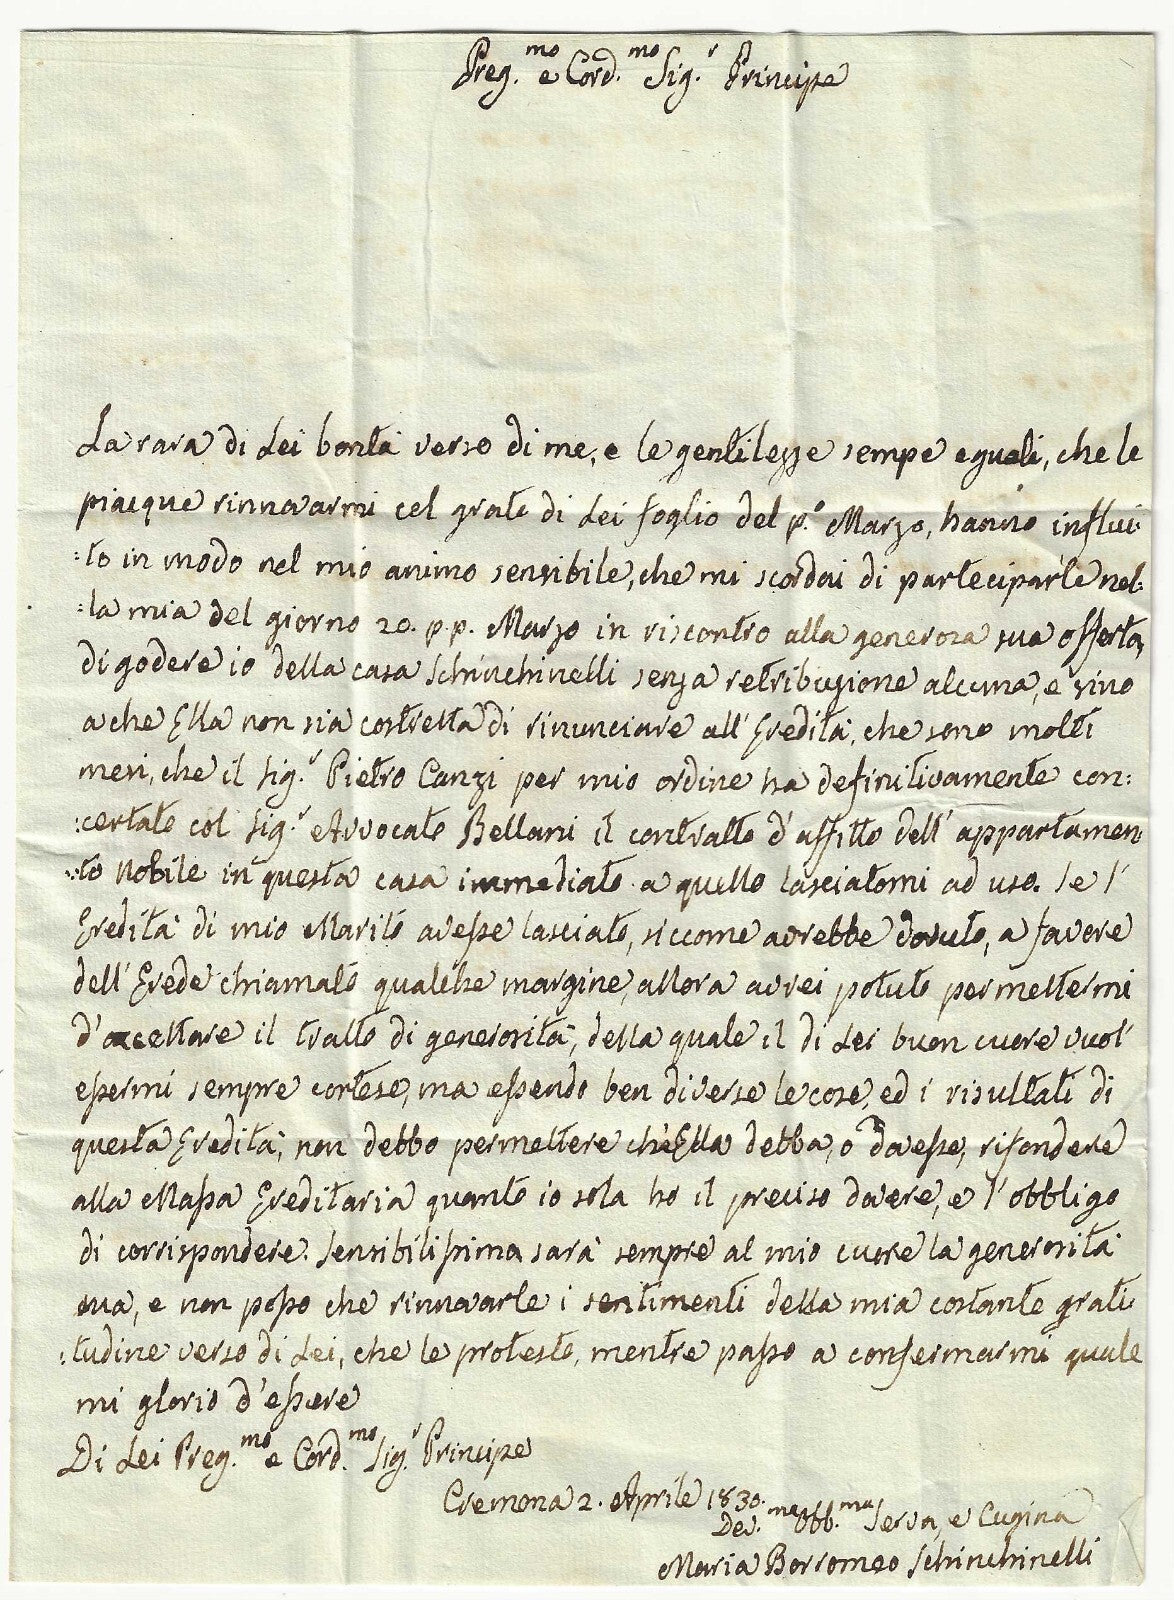 Preg.mo e Cord.mo Sig.r Principe
La rara di Lei bontà verso di me, e le gentilezze sempe eguali, che le
piacque rinnovarmi col grato di Lei foglio del p.o Marzo, hanno influi-
:to in modo nel mio animo sensibile, che mi scordai di parteciparle nel:
:la mia del giorno 20. p.p. Marzo in riscontro alla generosa sua offerta,
di godere io della casa Schinchinelli senza retribuzione alcuna, e sino
a che Ella non sia costretta di rinunciare all' Eredità, che sono molti
mesi, che il Sig.r Pietro Canzi per mio ordine ha definitivamente con:
:certato col Sig.r Avvocato Bellani il contratto d' affitto dell' appartamen
:to Nobile in questa casa immediato a quello lasciatomi ad uso. Se l'
Eredità di mio Marito avesse lasciato, siccome avrebbe dovuto, a favore
dell' Erede chiamato qualche margine, allora avrei potuto permettermi
d' accettare il tratto di generosità, della quale il di Lei buon cuore vuol
essermi sempre cortese, ma essendo ben diverse le cose, ed i risultati di
questa Eredità, non debbo permettere ch'Ella debba, o dovesse, rifondere
alla Massa Ereditaria quanto io sola ho il preciso dovere, e l' obbligo
di corrispondere. Sensibilissima sarà sempre al mio cuore la generosità
sua, e non posso che rinnovarle i sentimenti della mia costante grati
:tudine verso di Lei, che le protesto, mentre passo a confermarmi quale
mi glorio d' essere
Di Lei Preg.mo e Cord.mo Sig.r Principe
Cremona 2. Aprile 1830.
Dev.ma Obb.ma Serva, e Cugina
Maria Borromeo Schinchinelli